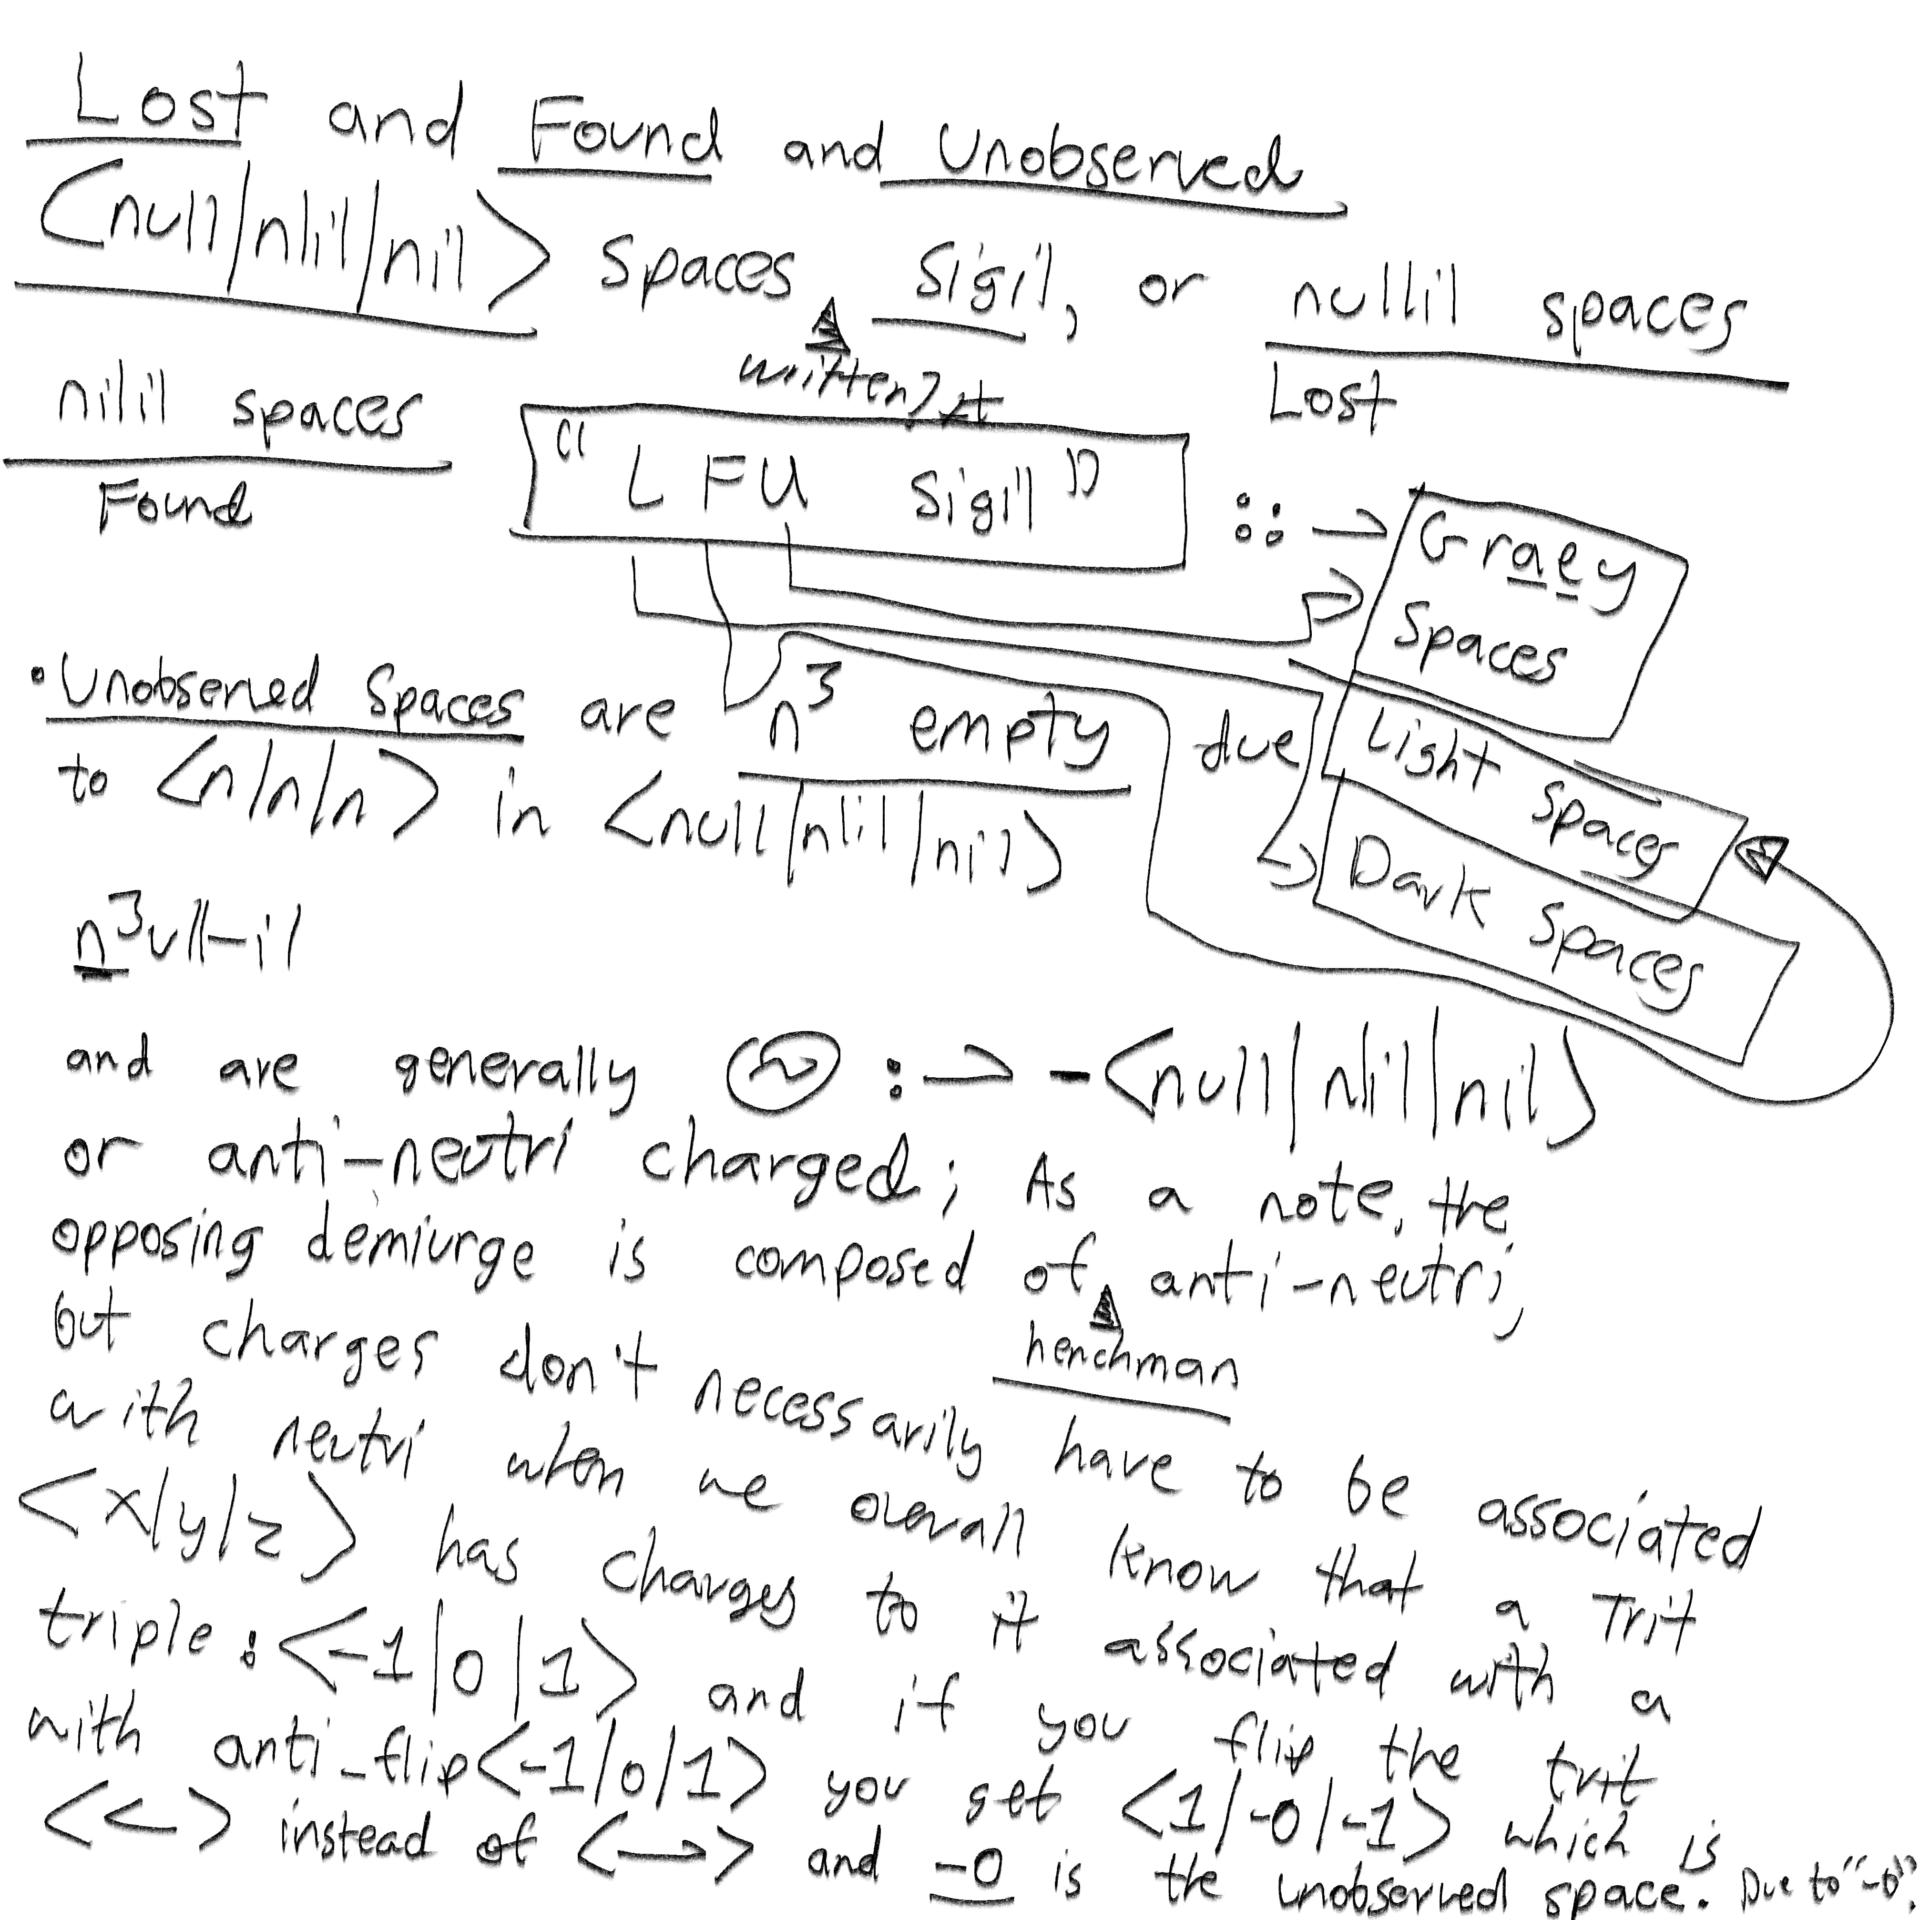 Lost and Found and Unobserved
<null|nlil|nil> spaces Sigil, or nullil spaces
written?,it
Lost
nilil spaces
Found
"LFU Sigil" :: →
Graey
Spaces
Light Spaces
Dark Spaces
• Unobserved Spaces are n³ empty due
to <n|n|n> in <null|nlil|nil>
n³ull-il
and are generally ~ :→ -<null|nlil|nil>
or anti-neutri charged; As a note, the
opposing demiurge is composed of anti-neutri,
henchman
but charges don't necessarily have to be associated
with neutri when we overall know that a Trit
<x|y|z> has charges to it associated with a
triple: <-1|0|1> and if you flip the trit
with anti_flip<-1|0|1> you get <1|-0|-1> which is
<<-> instead of <->> and -0 is the unobserved space. Due to "-0".